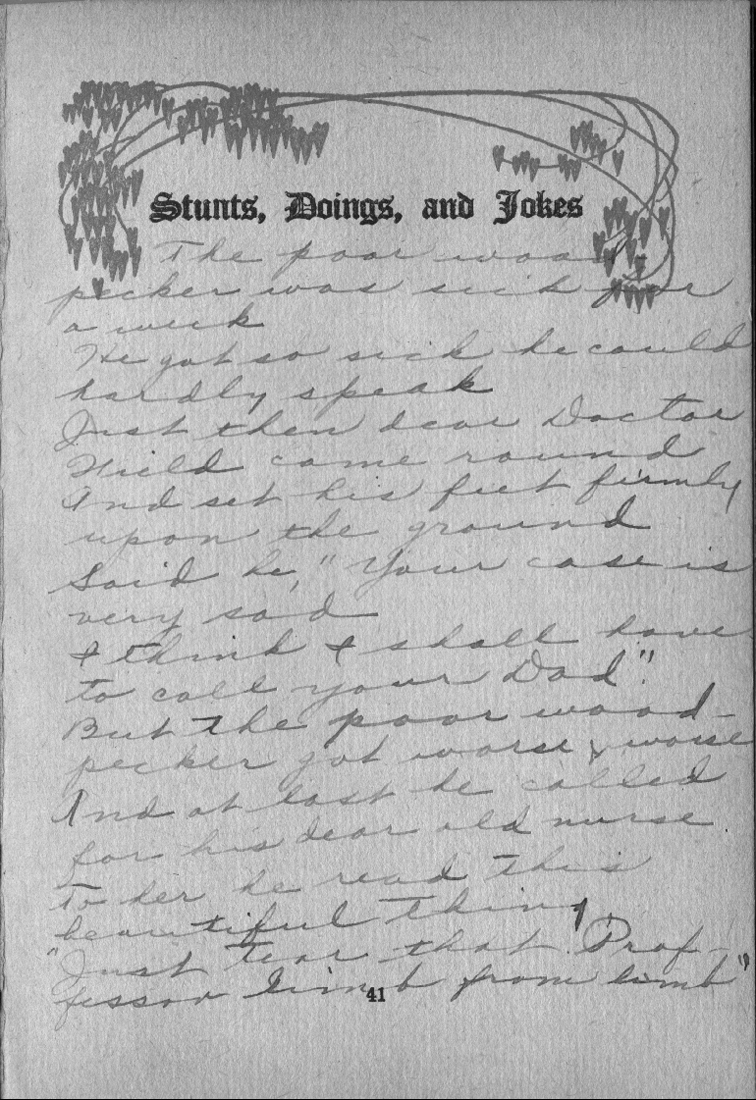 Stunts, Doings, and Jokes
The poor wood
pecker was sick for
a week
He got so sick he could
hardly speak
Just then dear Doctor
Field came round
And set his feet firmly
upon the ground
Said he, "Your case is
very sad
I think I shall have
to call your Dad".
But the poor wood-
pecker got worse & worse
And at last he called
for his dear old nurse.
To her he read this
beautiful thin
"Just tear that Prof-
fessor limb from limb"
41